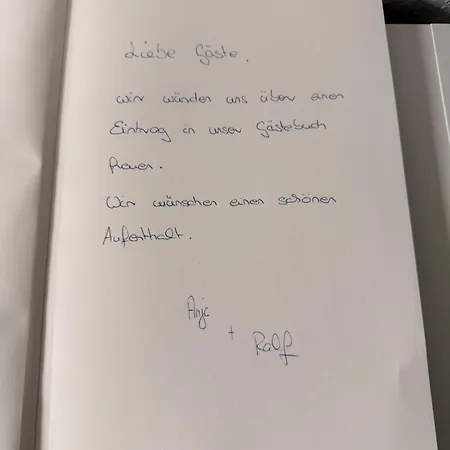 Liebe Gäste,
wir würden uns über einen
Eintrag in unser Gästebuch
freuen.
Wir wünschen einen schönen
Aufenthalt.
Anja
+
Ralf